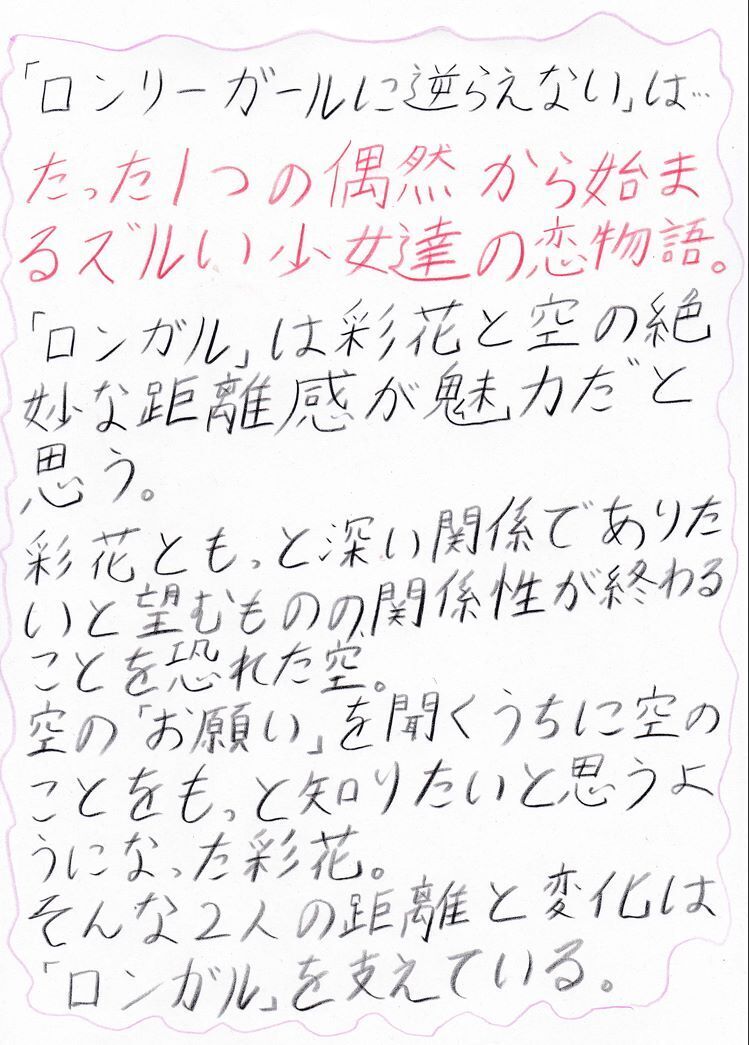 「ロンリーガールに逆らえない」は…
たった1つの偶然から始ま
るズルい少女達の恋物語。
「ロンガル」は彩花と空の絶
妙な距離感が魅力だと
思う。
彩花ともっと深い関係でありた
いと望むものの関係性が終わる
ことを恐れた空。
空の「お願い」を聞くうちに空の
ことをもっと知りたいと思うよ
うになった彩花。
そんな2人の距離と変化は
「ロンガル」を支えている。